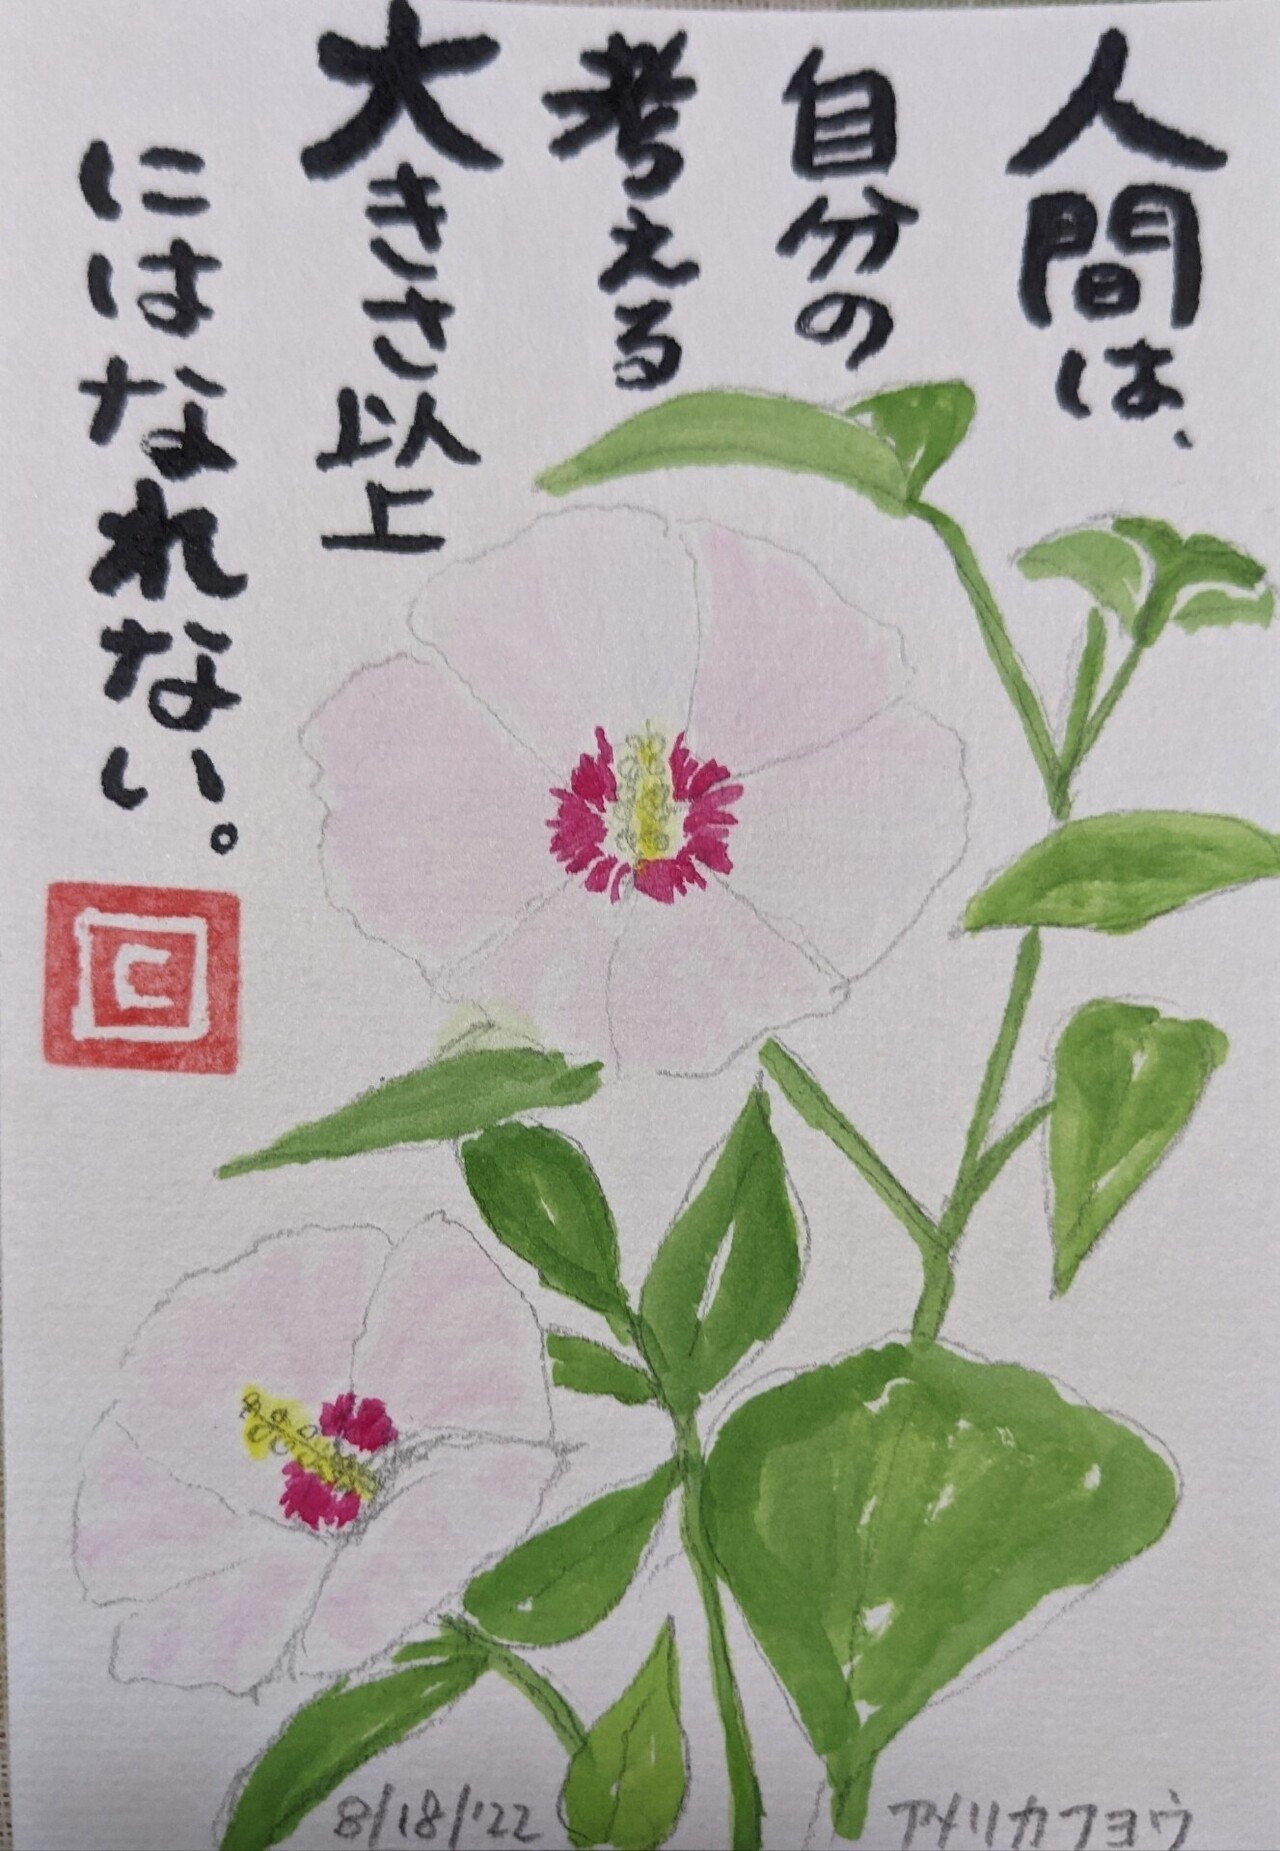 人間は、
自分の
考える
大きさ以上
にはなれない。
C
8/18/'22
アメリカフヨウ